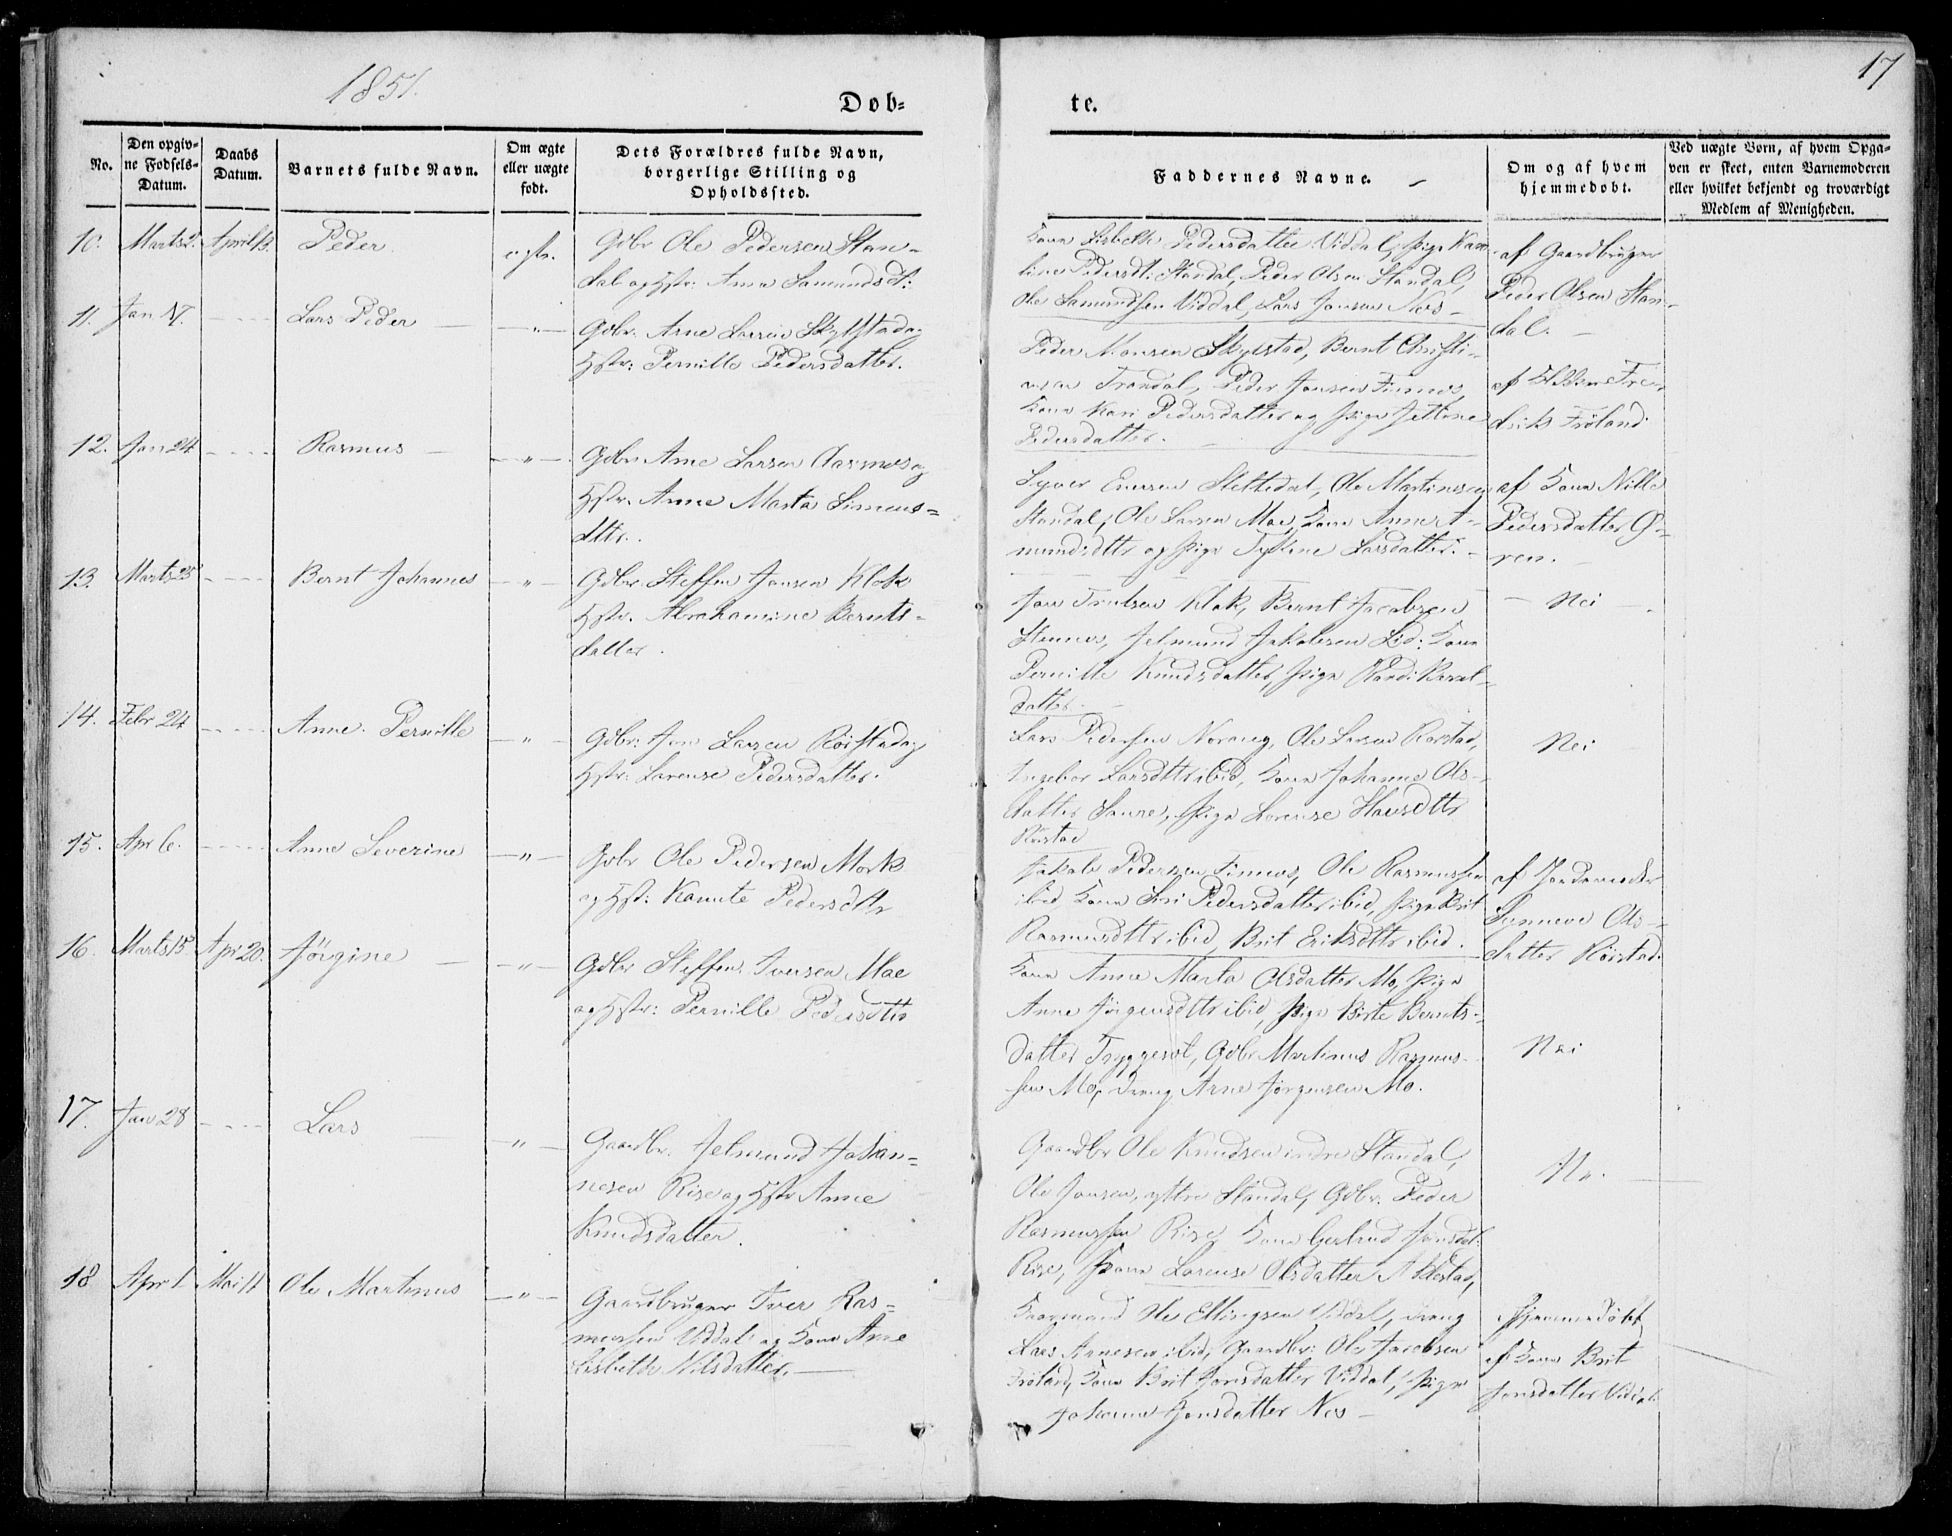 1851.
17
Døb-
te.
No.
Den opgiv-
ne Fødsels-
Datum.
Daabs
Datum.
Barnets fulde Navn.
Om ægte
eller uægte
født.
Dets Forældres fulde Navn,
borgerlige Stilling og
Opholdssted.
Faddernes Navne.
Om og af hvem
hjemmedøbt.
Ved uægte Børn, af hvem Opga-
ven er skeet, enten Barnemoderen
eller hvilket bekjendt og troværdigt
Medlem af Menigheden.
10. Marts 2. April 13. Peder
Gdbr Ole Pedersen Stan-
dal og Hstr: Anna Samunds D:
Kona Lisbeth Pedersdatter Viddal, Pige Karo-
line Pedersdt: Standal, Peder Olsen Standal,
Ole Samundsen Viddal, Lars Jonsen Nes -
af Gaardbruger
Peder Olsen Stan-
dal. -
11. Jan 17. Lars Peder - „ -
Gdbr. Arne Larsen Skylstad og
Hstr: Pernille Pedersdatter.
Peder Monsen Skylstad, Bernt Christi-
ansen Trandal, Peder Jonsen Finnes,
Kona Kari Pedersdatter og Pige Jettine
Pedersdatter.
Fre-
drik Frøland
12. Jan 24 Rasmus - „ -
Gdbr. Arne Larsen Aasnes og
Hstr. Anne Marta Simens-
dttr.
Syver Stettedal, Ole Martinsen
Standal, Ole Larsen Moe, Kona Anne A-
mundsdttr og Pige Larsdatter. -
af Kona Nille
Pedersdatter Ø-
ren.
13. Marts 25 Bernt Johannes - „ -
Gdbr. Steffen Jonsen Klok
Hstr. Abrahamine Bernts-
datter.
Jon Trulsen Klok, Bernt Jacobsen
Stennes, Jetmund Jakobsen Kona
Pernille Knudsdatter, Pige Randi Bernt-
datter. -
- Nei -
14. Febr 24 Anne Pernille - „ -
Gdbr: Jon Larsen Rørstad og
Hstr: Lorense Pedersdatter.
Lars Pedersen Norang, Ole Larsen Rørstad,
Ingebor Larsdttr ibid, Kona Johanne Ols-
datter Saure, Pige Lorense Hansdttr
Rørstad
Nei
15. Apr 6. Anne Severine - „ -
Gdbr Ole Pedersen Mork
og Hst: Kamte Pedersdttr
Jakob Pedersen Finnes, Ole Rasmussen
ibid, Kona Siri Pedersdatter ibid, Pige Brit
Rasmusdttr ibid, Brit Eriksdttr ibid.
af Jordemoder
Synneve Ols-
datter Rørstad.
16. Marts 15 Apr 20. Jørgine - „ -
Gdbr Steffen Iversen Moe
og Hstr: Pernille Pedersdttr
Kona Anne Marta Olsdatter Mo, Pige
Anne Jørgensdttr ibid, Pige Birte Bernts-
datter Tryggestøl, Gdbr Martinus Rasmus-
sen Mo, Dreng Arne Jørgensen Mo.
Nei
17. Jan 28 Lars - „ -
Gaardbr. Jetmund Johan-
nesen Rise og Hstr Anne
Knudsdatter.
Gaardbr Ole Knudsen indre Standal,
Ole Jonsen, yttre Standal, Gdbr. Peder
Rasmussen Rise, Kona Gertrud Jonsdt.
Rise, Kona Lorense Olsdatter Aklestad,
18 Apr 1 Mai 11 Ole Martinus - „ -
Gaardbruger Iver Ras-
mussen Viddal og Kone Anne
Lisbeth Nilsdatter. -
Ole Ellingsen Viddal, Dreng
Lars Arnesen ibid, Gaardbr: Ole Jacobsen
Frøland, Kona Brit Jonsdatter Viddal, Pige
Johanne Jonsdatter Nes -
Hjemmedøbt
af Kona Brit
Jonsdatter Viddal.